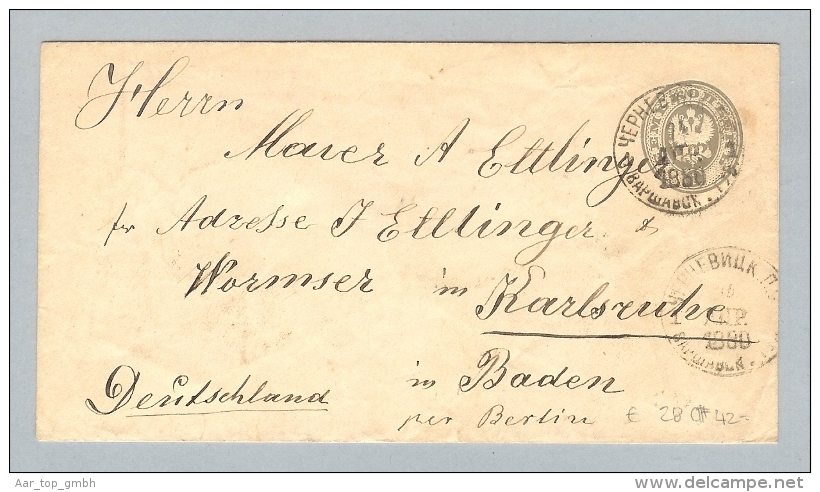 Herrn
Maier A Ettlinger
pr Adresse J Ettlinger &
Wormser in Karlsruhe
in Baden
Deutschland
per Berlin
€ 28 42-
АПР.
1880
ВАРШАВСК. Г.
ЧЕРНЕВИЦК. П.
1 АПР.
1880
ВАРШАВСК.
Aar_top_gmbh
www.delcampe.net